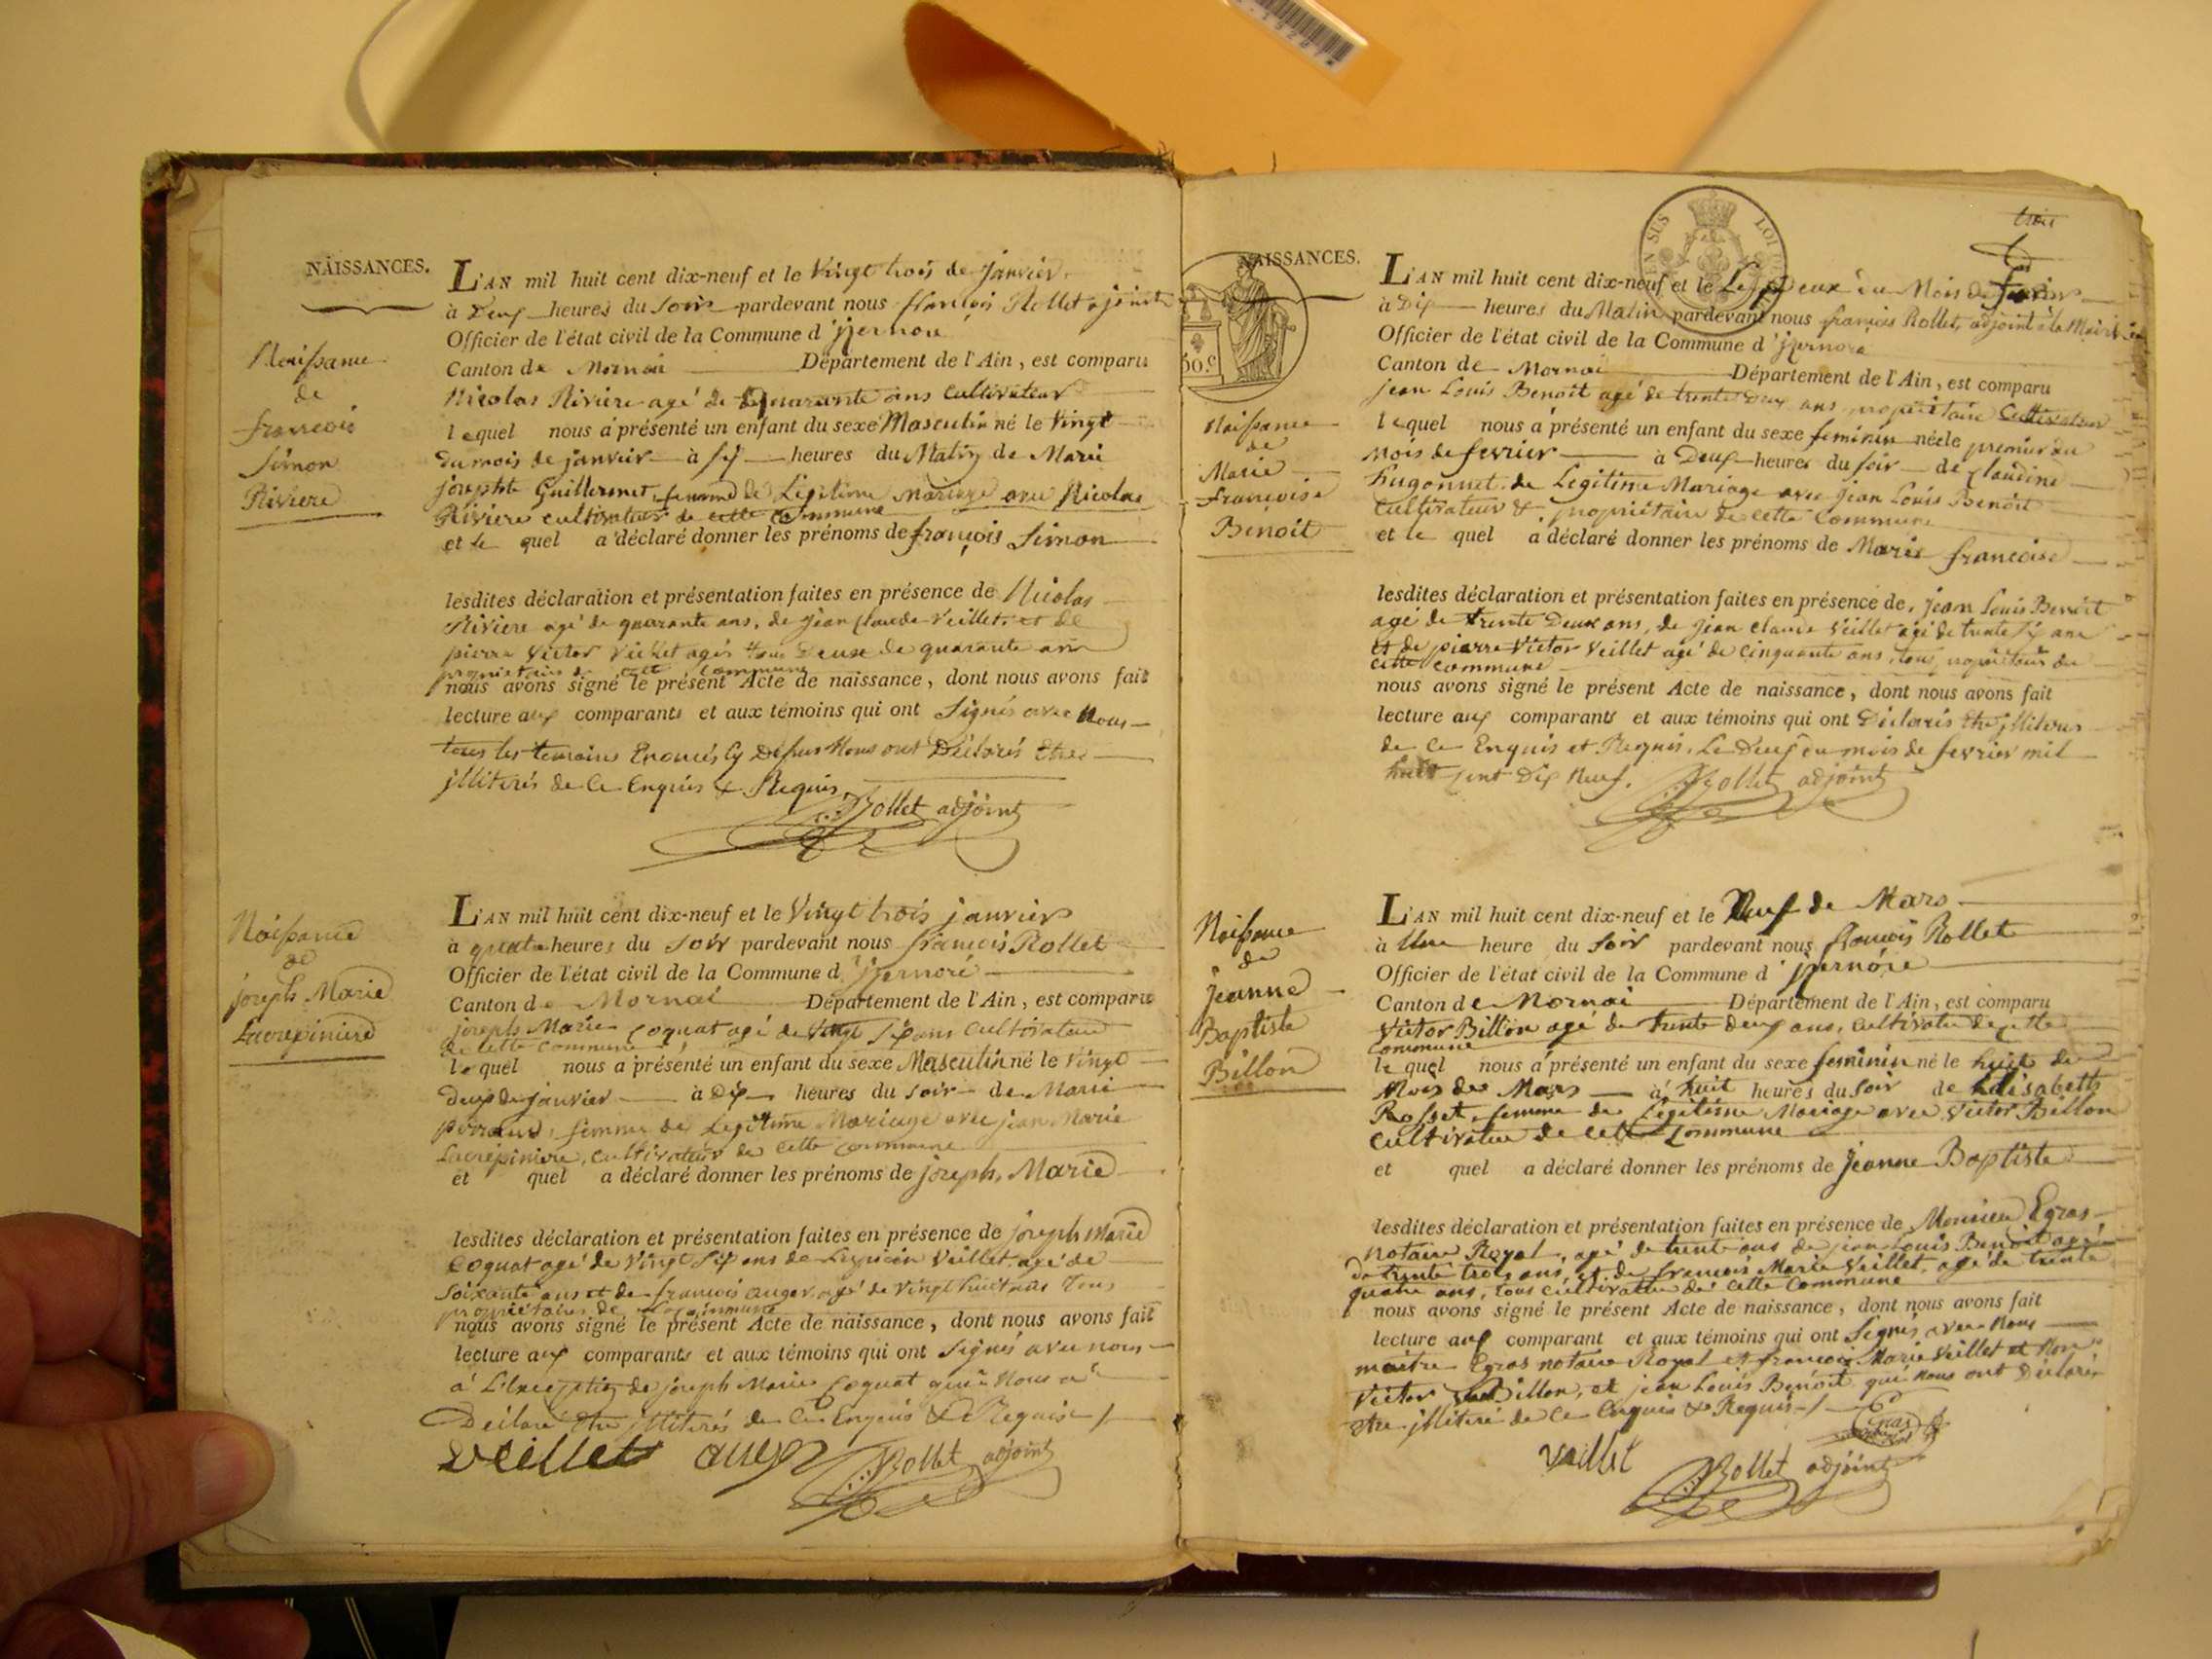 NAISSANCES.
L'AN mil huit cent dix-neuf et le Vingt trois de janvier
à Deux heures du Soire pardevant nous françois Rollet ajoint
Officier de l'état civil de la Commune d'jzernore
Canton de Mornai Département de l'Ain, est comparu
Nicolas Riviere agé de quarante ans Cultivateur
lequel nous a présenté un enfant du sexe Masculin né le Vingt
du mois de janvier à six heures du Matin de Marie
josephte Guillermet femme de Légitime Mariage avec Nicolas
Riviere cultivateur de cette Commune
et le quel a déclaré donner les prénoms de françois Simon
lesdites déclaration et présentation faites en présence de Nicolas
Riviere agé de quarante ans, de jean Claude Veillet et de
pierre Victor Veillet agés tous Deux de quarante ans
propriétaires de cette Commune
nous avons signé le présent Acte de naissance, dont nous avons fait
lecture aux comparants et aux témoins qui ont Signés avec Nous
tous les temoins Enoncés Cy Dessus Nous ont Déclarés Etre
jlliterés de Ce Enquis & Requis
Rollet adjoint
Naissance
de
françois
Simon
Riviere
L'AN mil huit cent dix-neuf et le Vingt trois janvier
à quatre heures du Soir pardevant nous françois Rollet
Officier de l'état civil de la Commune d'jzernore
Canton de Mornai Département de l'Ain, est comparu
joseph Marie Coquat agé de Vingt Six ans Cultivateur
de cette Commune
lequel nous a présenté un enfant du sexe Masculin né le Vingt
deux de janvier à Dix heures du Soir de Marie
perraud, femme de Legitime Mariage avec jean Marie
Lacrepiniere, cultivateur de cette commune
et quel a déclaré donner les prénoms de joseph, Marie
lesdites déclaration et présentation faites en présence de joseph Marie
Coquat agé de Vingt Six ans de Veillet agé de
Soixante ans et de françois auger, agé de Vingt huit ans tous
propriétaires de la Commune
nous avons signé le présent Acte de naissance, dont nous avons fait
lecture aux comparants et aux témoins qui ont Signés avec nous
à L'Exception de joseph Marie Coquat qui Nous a
Déclaré Etre jlliterés de Ce Enquis & Requis /
Veillet auger Rollet adjoint
Naissance
de
joseph Marie
Lacrepiniere
NAISSANCES.
EN SUS LOI
50.c
L'AN mil huit cent dix-neuf et le Le Deux du Mois de fevrier
à Dix heures du Matin pardevant nous françois Rollet, adjoint à la Mairie
Officier de l'état civil de la Commune d'jzernore
Canton de Mornai Département de l'Ain, est comparu
jean Louis Benoit agé de trente Deux ans propriétaire Cultivateur
lequel nous a présenté un enfant du sexe feminin née le premier du
Mois de fevrier à Deux heures du soir de Claudine
hugonnet de Legitime Mariage avec jean Louis Benoit
Cultivateur & propriétaire de cette Commune
et le quel a déclaré donner les prénoms de Marie francoise
lesdites déclaration et présentation faites en présence de, jean Louis Benoit
agé de trente Deux ans, de jean claude Veillet agé de trente Six ans
et de pierre Victor Veillet agé de cinquante ans, tous propriétaires de
cette commune
nous avons signé le présent Acte de naissance, dont nous avons fait
lecture aux comparants et aux témoins qui ont Déclarés Etre jlliterés
de Ce Enquis et Requis, Le Deux du mois de fevrier mil
huit Cent Dix Neuf. Rollet adjoint
Naissance
de
Marie
françoise
Benoit
L'AN mil huit cent dix-neuf et le Neuf de Mars
à Une heure du Soir pardevant nous françois Rollet
Officier de l'état civil de la Commune d'jzernore
Canton de Mornai Département de l'Ain, est comparu
Victor Billon agé de trente deux ans, cultivateur de cette
Commune
le quel nous a présenté un enfant du sexe feminin né le huit de
Mois de Mars à huit heures du Soir de Elisabeth
Rosset, femme de Légitime Mariage avec Victor Billon
cultivateur de cette Commune
et quel a déclaré donner les prénoms de jeanne Baptiste
lesdites déclaration et présentation faites en présence de Monsieur Egras
Notaire Royal, agé de trente ans de jean Louis Benoit agé
de trente trois ans, et de francois Marie Veillet, agé de trente
quatre ans, tous cultivateur de cette Commune
nous avons signé le présent Acte de naissance, dont nous avons fait
lecture aux comparant et aux témoins qui ont Signés avec Nous
maitre Egras notaire Royal et francois Marie Veillet et Non
Victor Billon, et jean Louis Benoit qui Nous ont Déclarés
Etre jlliteré de Ce Enquis & Requis /
Egras
Veillet Rollet adjoint
Naissance
de
jeanne
Baptiste
Billon